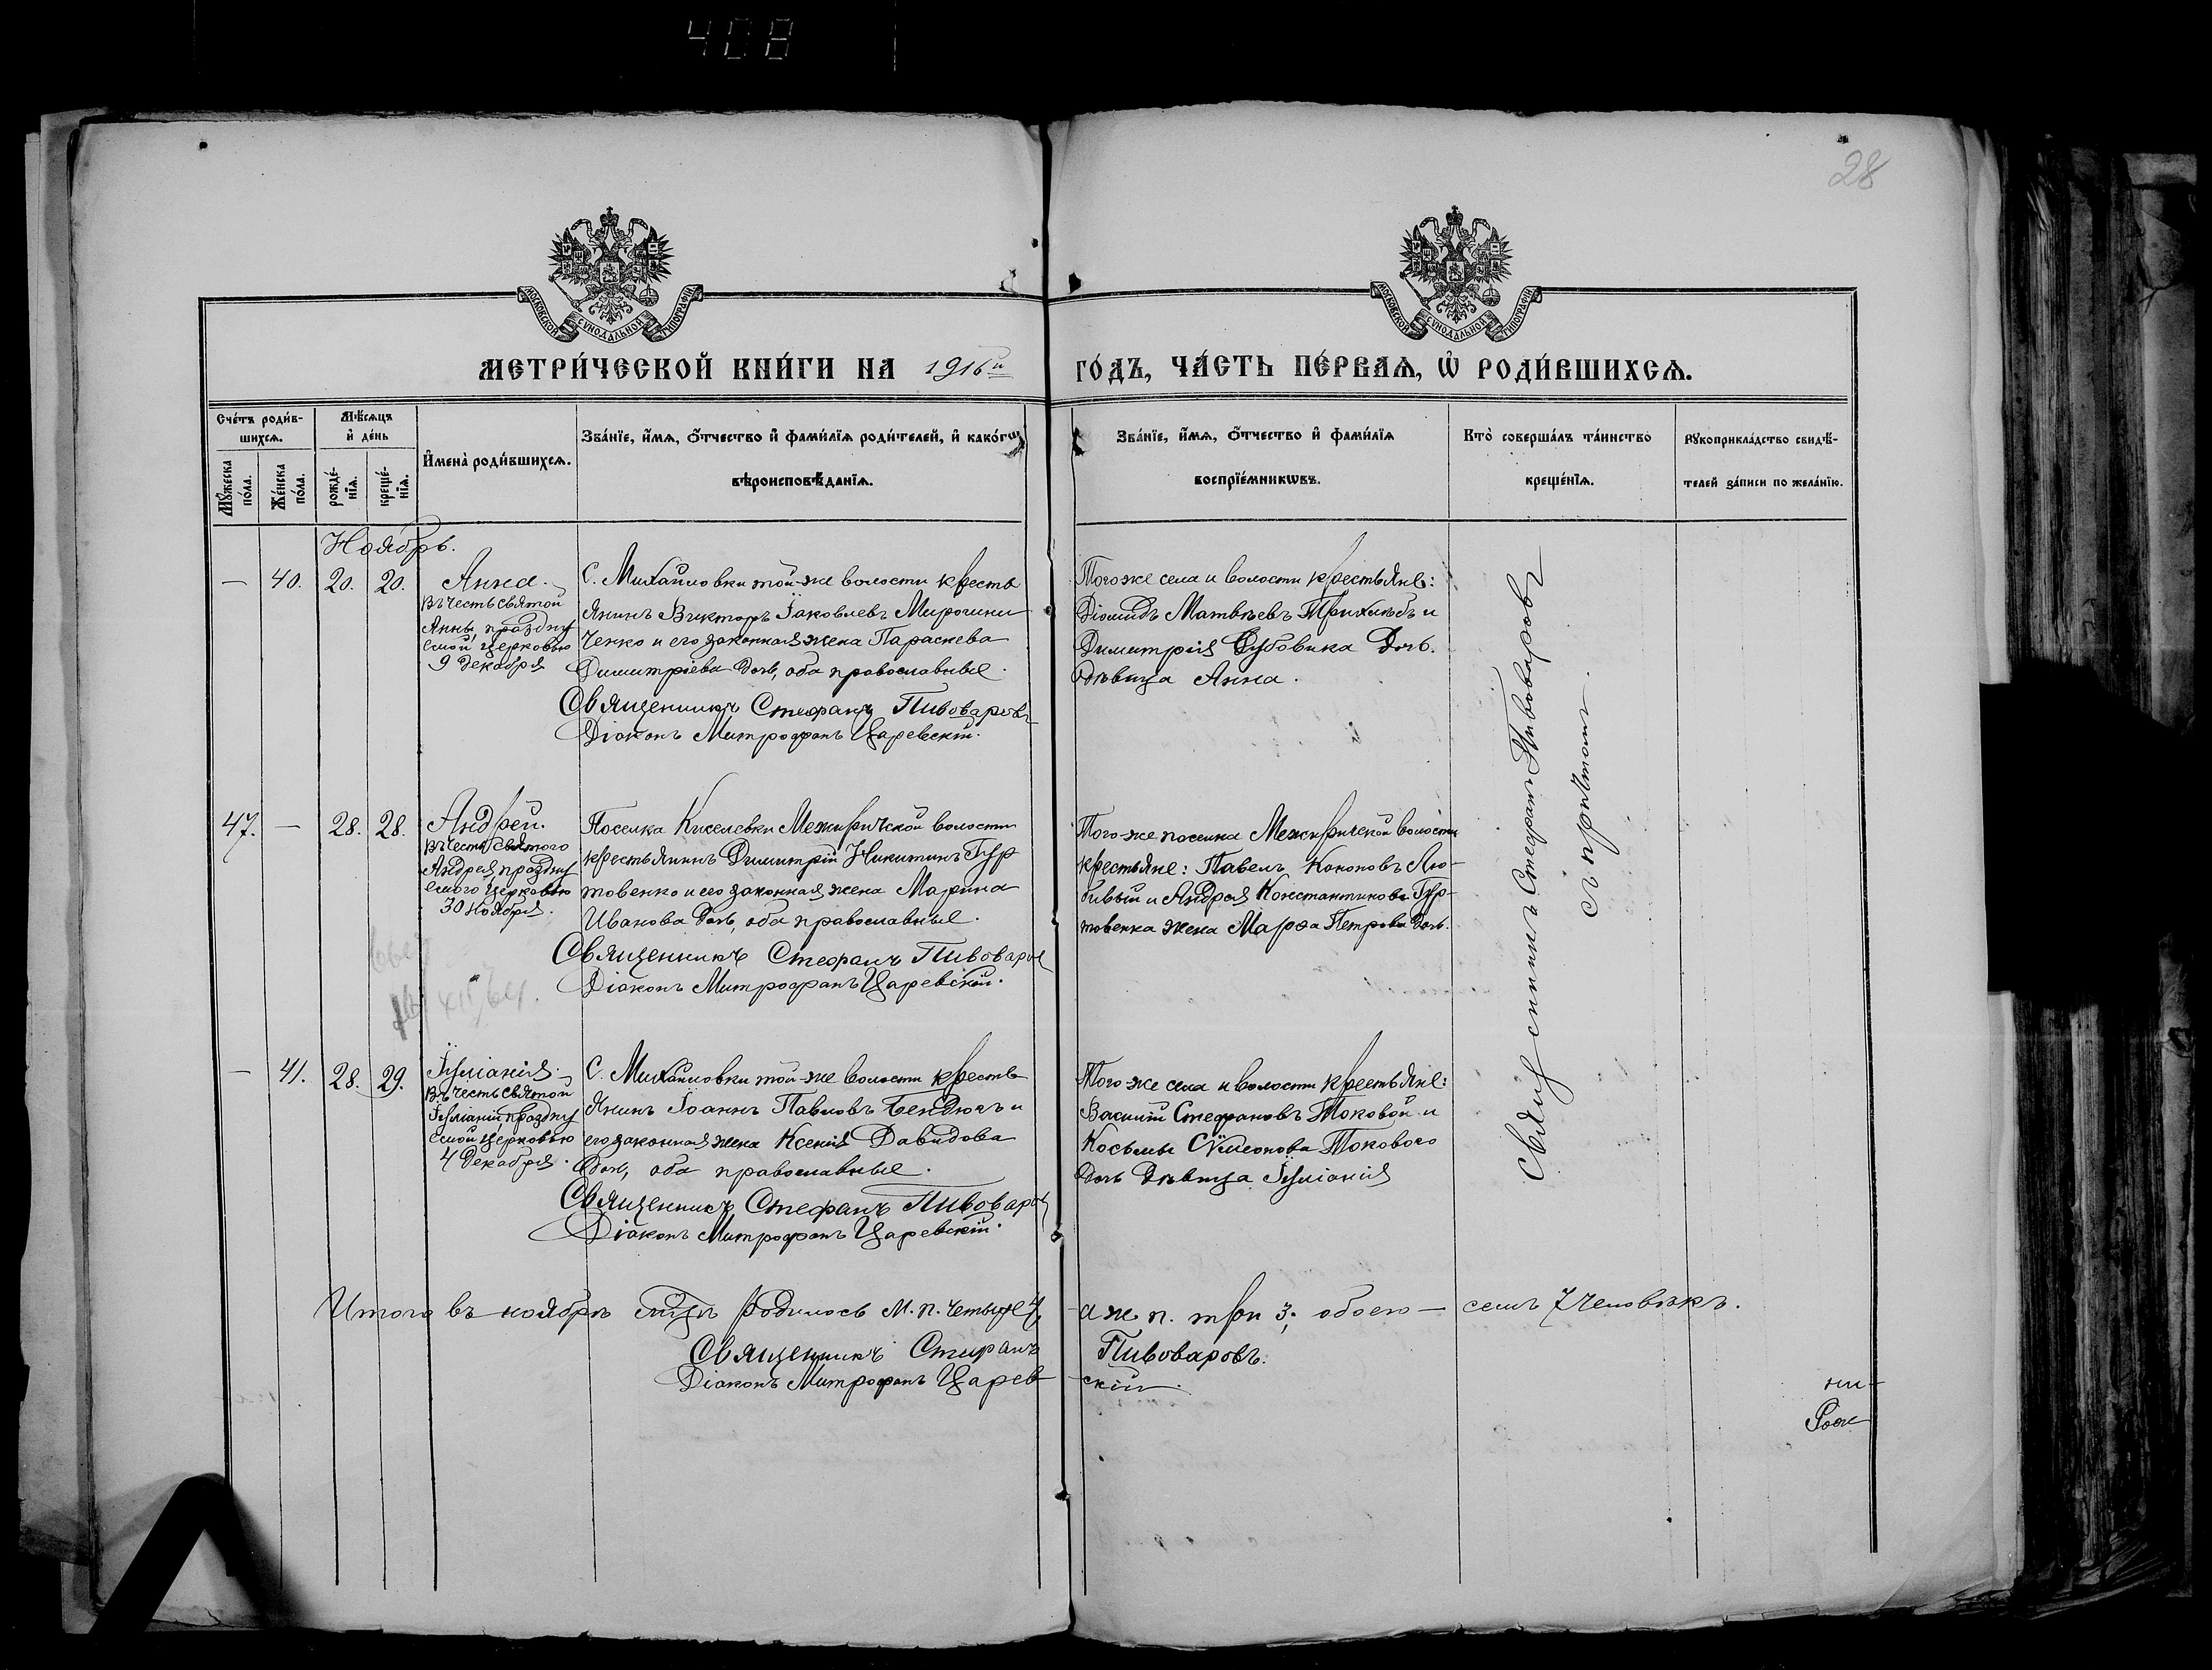 408
28
МОСКОВСКОЙ СѴНОДАЛЬНОЙ ТИПОГРАФІИ
МОСКОВСКОЙ СѴНОДАЛЬНОЙ ТИПОГРАФІИ
МЕТРИ́ЧЕСКОЙ КНИ́ГИ НА 1916й ГО́ДЪ, ЧА́СТЬ ПЕ́РВАѦ, Ѿ РОДИ́ВШИХСѦ.
Сче́тъ роди́в-
шихсѧ.
Мѣ́сѧцъ
и҆ де́нь
Мꙋ́жеска по́ла.
Же́нска по́ла.
рожде́-
нїѧ.
креще́-
нїѧ.
И҆мена̀ роди́вшихсѧ.
Зва́нїе, и҆́мѧ, ѻ҆́тчество и҆ фами́лїѧ роди́телей, и҆ како́гѡ
вѣроисповѣ́данїѧ.
Зва́нїе, и҆́мѧ, ѻ҆́тчество и҆ фами́лїѧ
воспрїе́мникѡвъ.
Кто̀ соверша́лъ та́инство
креще́нїѧ.
Рꙋкоприкла́дство свидѣ́-
телей за́писи по жела́нїю.
Ноябрь.
— 40. 20. 20.
Анна.
Въ честь святой
Анны, праздну
емой церковью
9 декабря
С. Михайловки той-же волости кресть
янинъ Викторъ Іаковлевъ Мирошни
ченко и его законная жена Параскева
Димитріева дочь, оба православные.
Священникъ Стефанъ Пивоваровъ
Діаконъ Митрофанъ Царевскій.
Того же села и волости крестьяне:
Діомидъ Матвѣевъ и
Димитрія дочь
дѣвица Анна.
47. — 28. 28.
Андрей.
Въ честь святого
Андрея, праздну
емого церковью
30 ноября.
Поселка Киселевки Межиричской волости
крестьянинъ Димитрій Никитинъ Гур
товенко и его законная жена Марина
Иванова дочь, оба православные.
Священникъ Стефанъ Пивоваров
Діаконъ Митрофанъ Царевскій.
Того-же поселка Межиричской волости
крестьяне: Павелъ Кононовъ Лю-
бивый и Андрея Константинова Гур-
товенка жена Марѳа Петрова дочь.
— 41. 28. 29.
Іуліанія.
Въ честь святой
Іуліаніи, праздну
емой церковью
4 декабря.
С. Михайловки той-же волости кресть
янинъ Іоаннъ Павловъ Бендюгъ и
его законная жена Ксенія Давидова
дочь, оба православные.
Священникъ Стефанъ Пивоваров
Діаконъ Митрофанъ Царевскій.
Того-же села и волости крестьяне:
Василій Стефановъ Токовой и
Косьмы Сѵмеонова Токового
дочь дѣвица Іуліанія
Священникъ Стефанъ Пивоваровъ
съ причтомъ.
Итого въ ноябрѣ мѣсяцѣ родилось м. п. четыре 4, а ж. п. три 3; обоего — семь 7 человѣкъ.
Священникъ Стефанъ Пивоваровъ.
Діаконъ Митрофанъ Царев-скій.